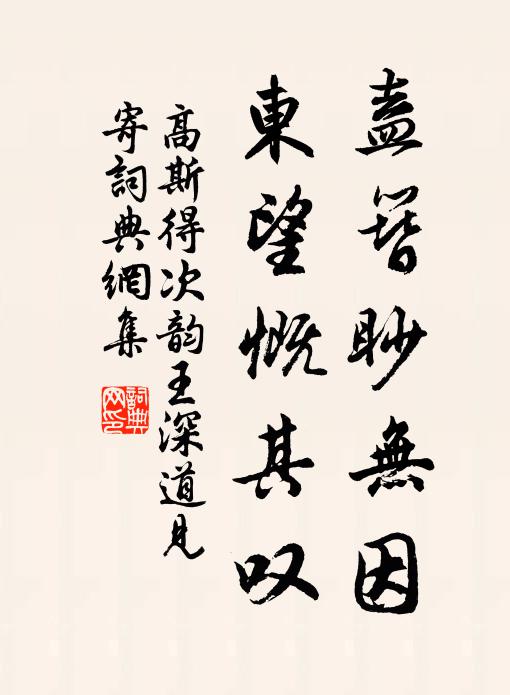 盍簪眇無因
東望慨其叹
高斯得次韵王深道見
寄詞典網集
詞典
网印